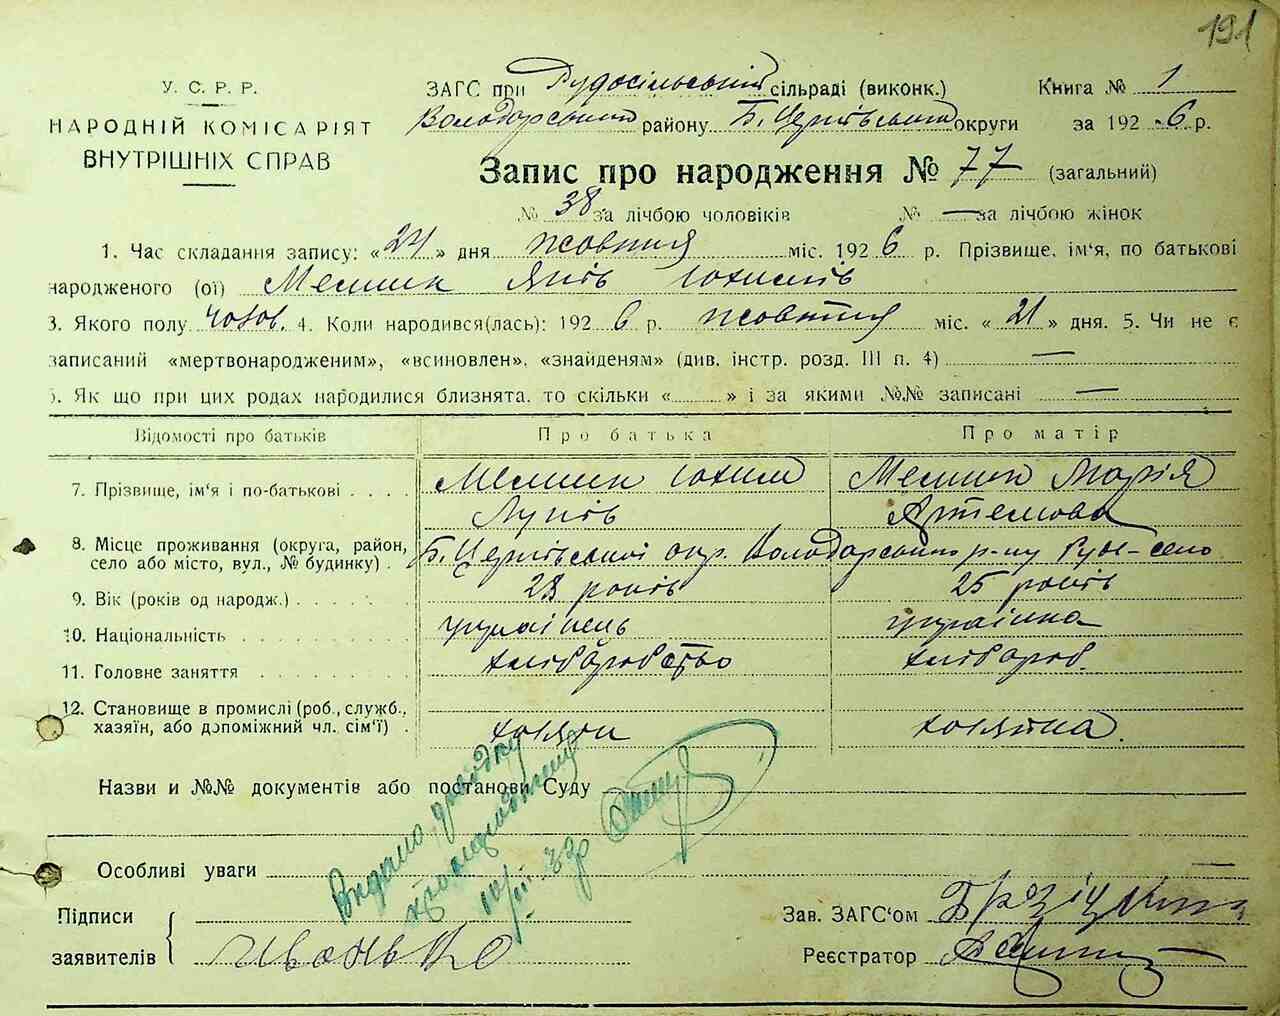 191
У. С. Р. Р.
НАРОДНІЙ КОМІСАРІЯТ
ВНУТРІШНІХ СПРАВ
ЗАГС при Рудосільський сільраді (виконк.) Книга № 1
Володарський району Б. Церківський округи за 1926 р.
Запис про народження № 77 (загальний)
№ 38 за лічбою чоловіків № — за лічбою жінок
1. Час складання запису: «24» дня жовтня міс. 1926 р. Прізвище, ім'я, по батькові
народженого (ої) Мельник Яків Юхимів
3. Якого полу чолов. 4. Коли народився(лась): 1926 р. жовтня міс. «21» дня. 5. Чи не є
записаний «мертвонародженим», «всиновлен», «знайденям» (див. інстр. розд. III п. 4) —
6. Як що при цих родах народилися близнята, то скільки «......» і за якими №№ записані —
Відомості про батьків Про батька Про матір
7. Прізвище, ім'я і по-батькові . . . . Мельник Юхим Мельник Марія
Луків Артемова
8. Місце проживання (округа, район,
село або місто, вул., № будинку) . Б. Церківської окр. Володарського р-ну Руде-село
9. Вік (років од народж.) 28 років 25 років
10. Національність українець українка
11. Головне заняття хліборобство хлібороб.
12. Становище в промислі (роб., служб.,
хазяїн, або допоміжний чл. сім'ї) . хазяїн хазяйка.
Назви и №№ документів або постанови Суду
Видано довідку
10/III 33р
Особливі уваги —
Підписи
заявителів Іванько
Зав. ЗАГС'ом
Реєстратор